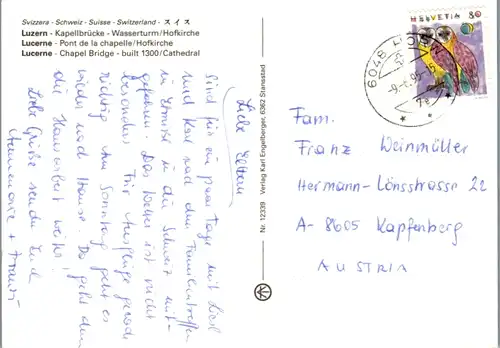 Svizzera - Schweiz - Suisse - Switzerland - スイス
Luzern - Kapellbrücke - Wasserturm/Hofkirche
Lucerne - Pont de la chapelle/Hofkirche
Lucerne - Chapel Bridge - built 1300/Cathedral
Liebe Eltern
sind für ein paar Tage mit Liesl
und Karl nach dem Familientreffen
in Ermisse in die Schweiz mit-
gefahren. Das Wetter ist nicht
besonders für Ausflüge gerade
richtig. Am Sonntag geht es
wieder nach Hause. Da geht dann
die Hausarbeit weiter!
Liebe Grüße senden Euch
Annemarie + Franz
Nr. 12339 Verlag Karl Engelberger, 6362 Stansstad
HELVETIA 80
6048 HORW
Fam.
Franz Weinmüller
Hermann-Lönsstrasse 22
A-8605 Kapfenberg
AUSTRIA